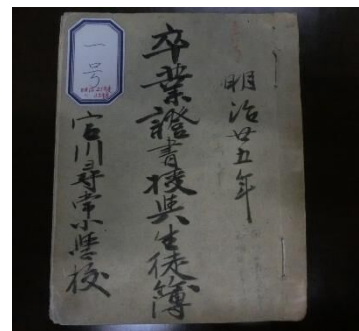 明治廿五年
卒業證書授與生徒簿
宮川尋常小學校
一号